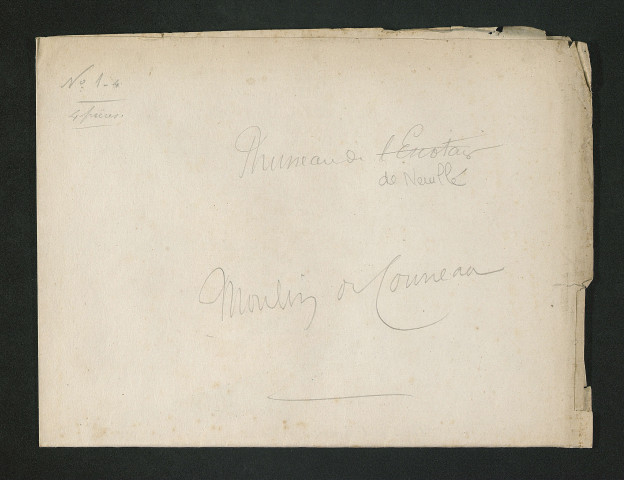 No 1-4
4 pièces.
Ruisseau de l'Enotais
de Neuillé
Moulin de Cosneau